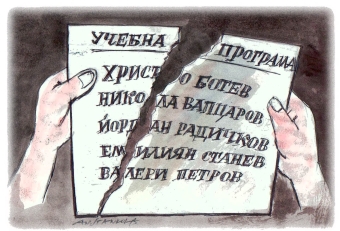 УЧЕБНА ПРОГРАМА
ХРИСТО БОТЕВ
НИКОЛА ВАПЦАРОВ
ЙОРДАН РАДИЧКОВ
ЕМИЛИЯН СТАНЕВ
ВАЛЕРИ ПЕТРОВ